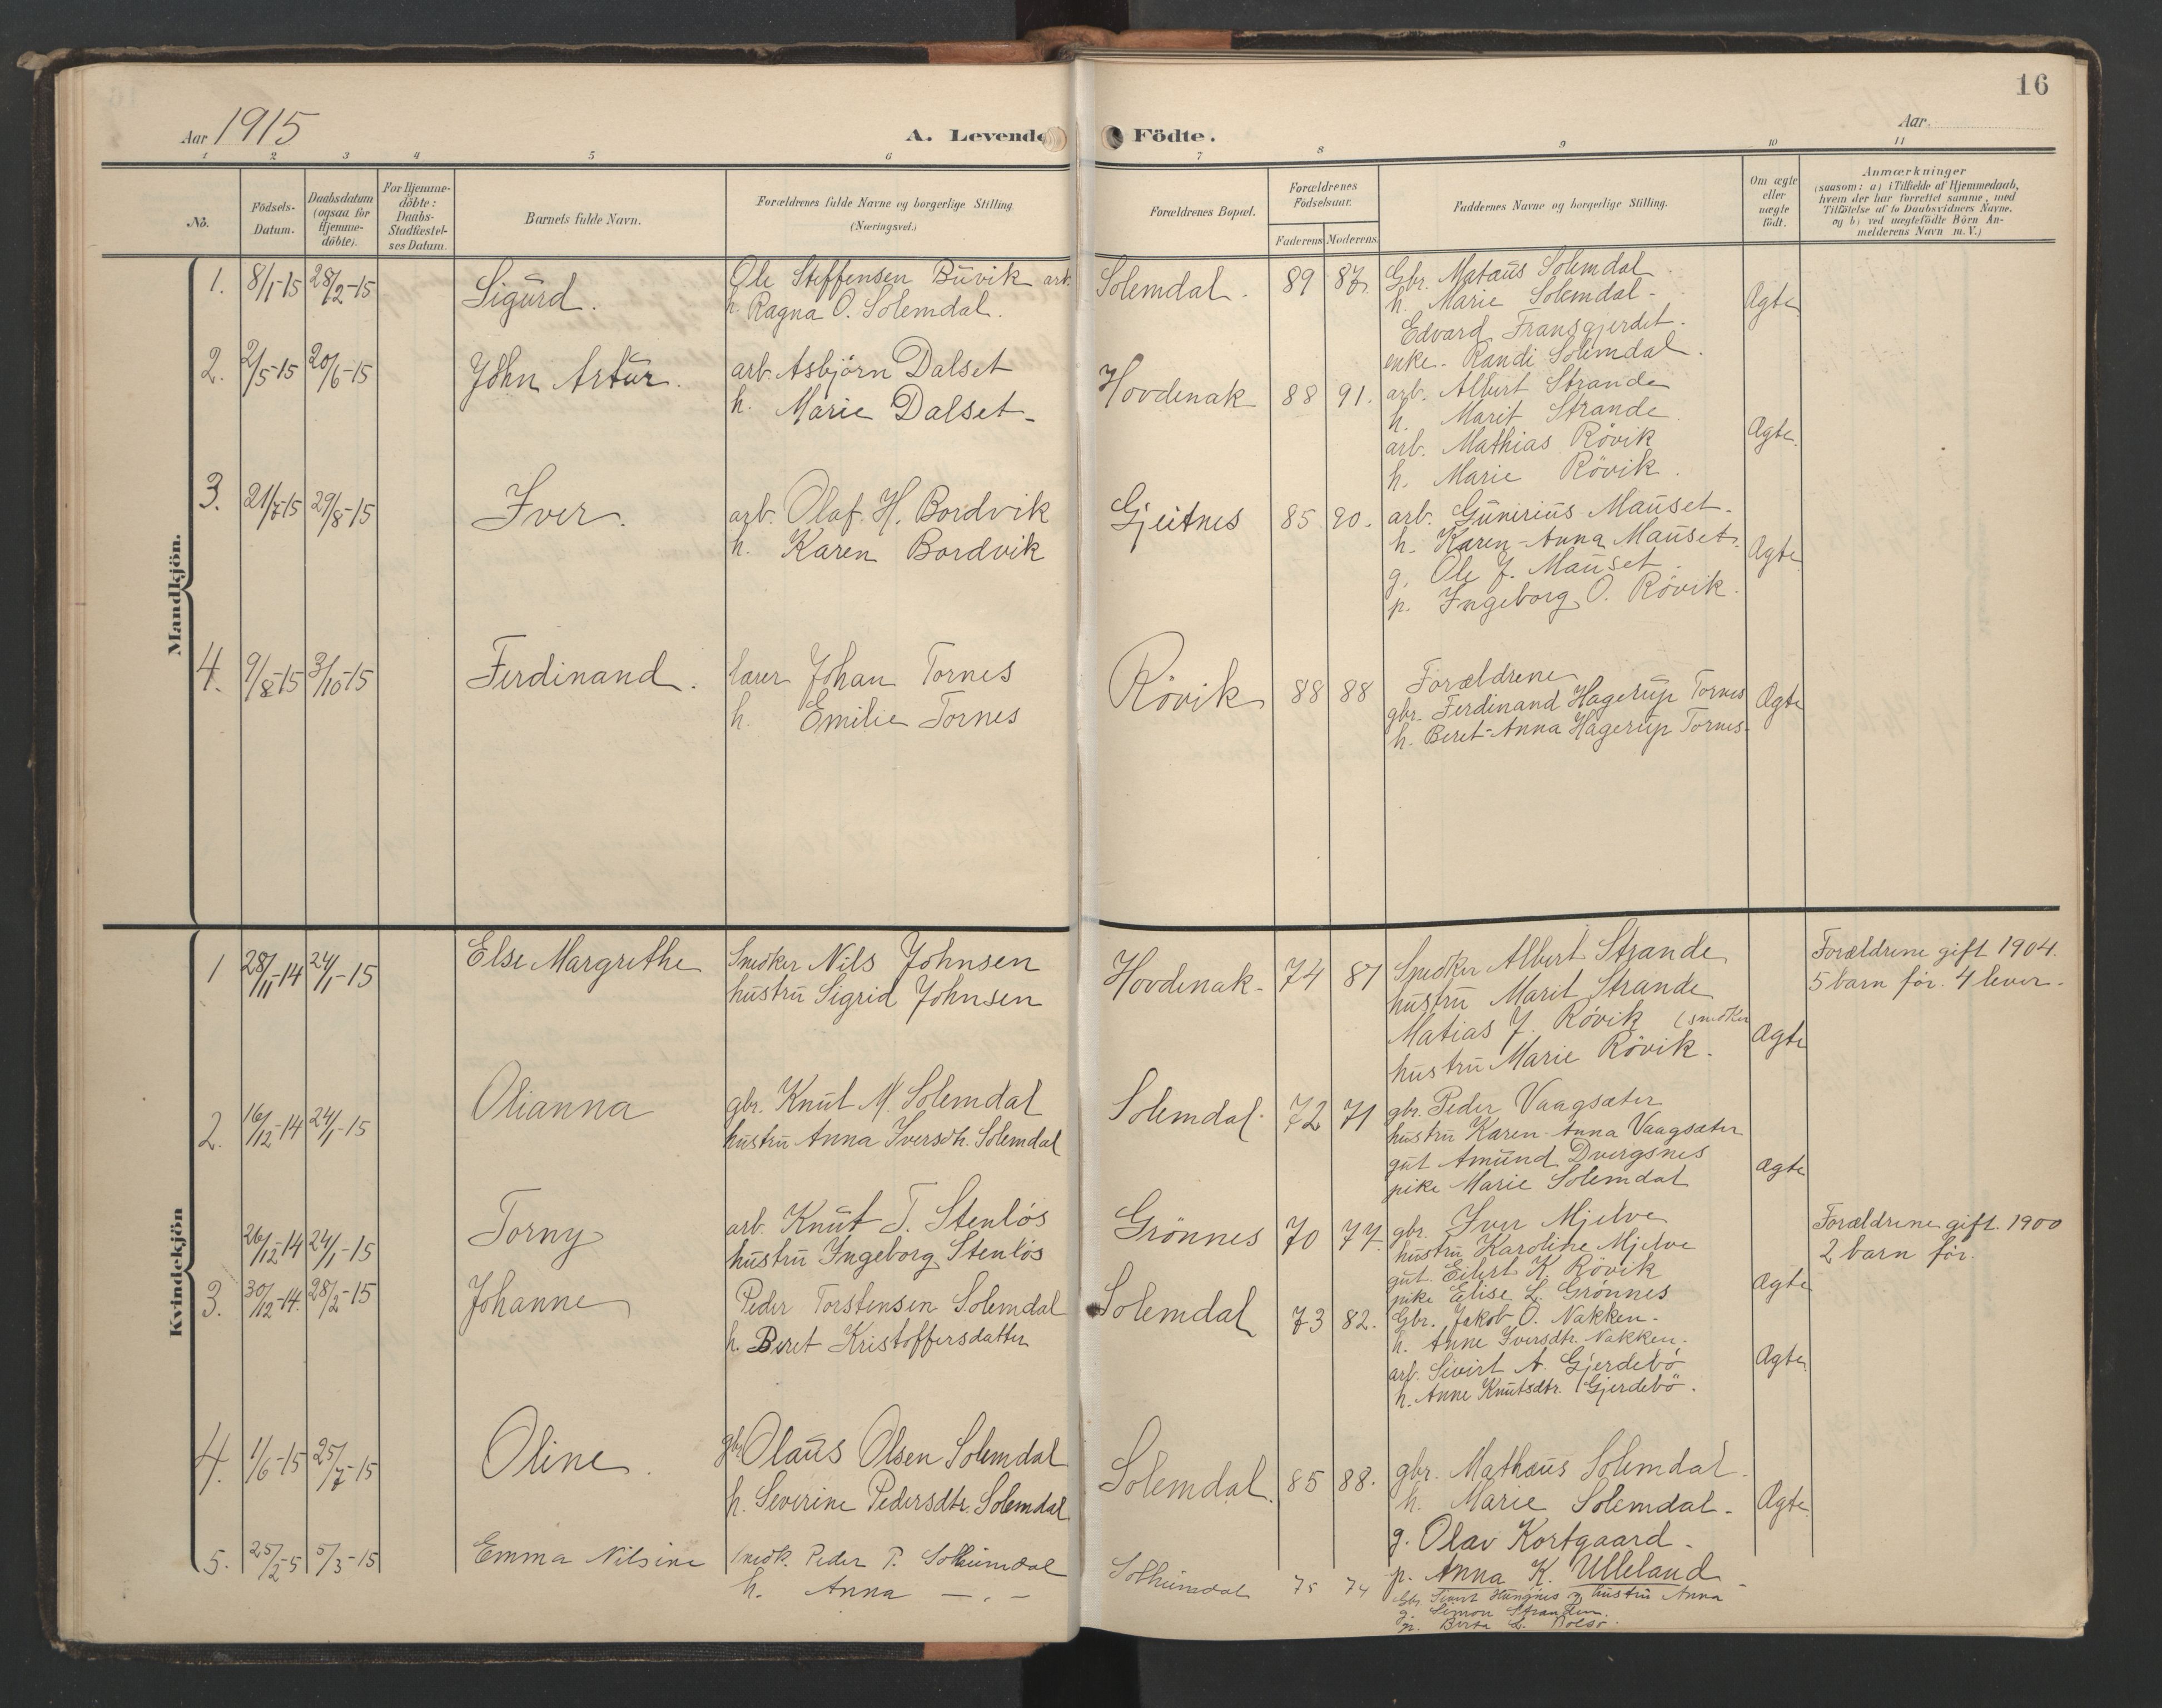 16
Aar 1915
A. Levende Födte.
Aar
1 2 3 4 5 6 7 8 9 10 11
No.
Födsels-Datum.
Daabsdatum (ogsaa for Hjemme-döbte).
For Hjemme-döbte: Daabs-Stadfæstel-ses Datum.
Barnets fulde Navn.
Forældrenes fulde Navne og borgerlige Stilling (Næringsvei.)
Forældrenes Bopæl.
Forældrenes Födselsaar.
Faderens Moderens
Faddernes Navne og borgerlige Stilling.
Om ægte eller uægte födt.
Anmærkninger
(saasom: a) i Tilfælde af Hjemmedaab,
hvem der har forrettet samme, med
Tilföielse af to Daabsvidners Navne,
og b) ved uægtefödte Börn An-
melderens Navn m. V.)
Mandkjön.
1. 8/1-15 28/2-15 Sigurd. Ole Steffensen Buvik arb. Solemdal. 89 87. Gbr. Mataus Solemdal
h. Ragna O. Solemdal. h. Marie Solemdal - Ægte
Edvard Fransgjerdet.
enke. Randi Solemdal.
2. 2/5-15 20/6-15 John Artur. arb. Asbjørn Dalset Hovdenak 88 91. arb. Albert Strande
h. Marie Dalset - h. Marit Strande
arb. Mathias Rövik Ægte.
h. Marie Rövik.
3. 21/7-15 29/8-15 Iver. arb. Olaf H. Bordvik Gjeitnes 85 90. arb. Gunerius Mauset.
h. Karen Bordvik h. Karen-Anna Mauset. Ægte
g. Ole J. Mauset.
p. Ingeborg O. Rövik.
4. 9/8-15 3/10-15 Ferdinand. lærer Johan Tornes Rövik 88 88 Forældrene
h. Emilie Tornes gbr. Ferdinand Hagerup Tornes Ægte
h. Beret-Anna Hagerup Tornes-
Kvindekjön
1 28/11-14 24/1-15 Else Margrethe Snedker Nils Johnsen Hovdenak- 74 81 Snedker Albert Strande Forældrene gift 1904.
hustru Sigrid Johnsen hustru Marit Strande 5 barn før. 4 lever.
Matias J. Rövik (snedker
hustru Marie Rövik. Ægte
2. 16/12-14 24/1-15 Olianna gbr. Knut M. Solemdal Solemdal. 72 71 gbr. Peder Vaagsæter
hustru Anna Iversdtr. Solemdal hustru Karen-Anna Vaagsæter
gut Amund Dvergsnes Ægte
pike Marie Solemdal
26/12-14 24/1-15 Torny arb. Knut T. Stenløs Grönnes 70 77. gbr. Iver Mjelve Forældrene gift. 1900
hustru Ingeborg Stenløs hustru Karoline Mjelve 2 barn før.
gut. Eilert K Rövik
pike Elise L. Grønnes Ægte
3. 30/12-14. 28/2-15 Johanne Peder Torstensen Solemdal Solemdal 73 82. Gbr. Jakob O. Nakken-
h. Beret Kristoffersdatter h. Anne Iversdtr. Nakken.
arb. Sivert A. Gjerdebø Ægte
h. Anne Knutsdtr. Gjerdebö.
4. 1/6-15 25/7-15 Oline. gbr. Olaus Olsen Solemdal Solemdal. 85 88. gbr. Mathæus Solemdal.
h. Severine Pedersdtr. Solemdal h. Marie Solemdal- Ægte
g. Olav Kortgaard-
p. Anna K. Ulleland-
5. 25/2-5 5/3-15 Emma Nilsine snedk. Peder P. Solheimdal Solheimdal 75 74 Gbr. Sivert Haugnes og hustru Anna
h. Anna - . - g. Simon
p. Berta L. Bolsø.